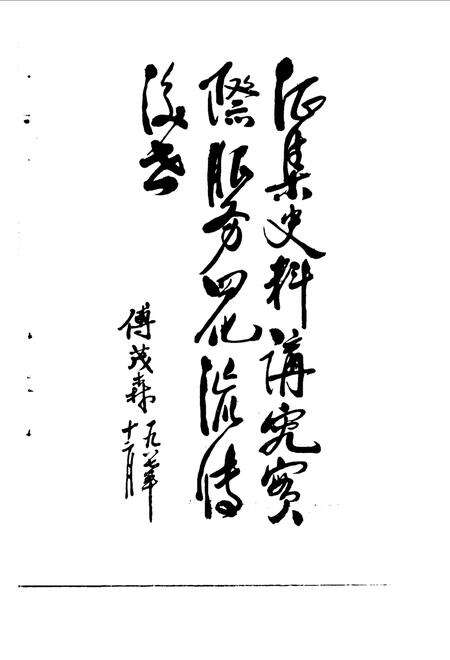 征集史料講究實
際服务四化流传
后世
傅茂森
一九八七年
十二月